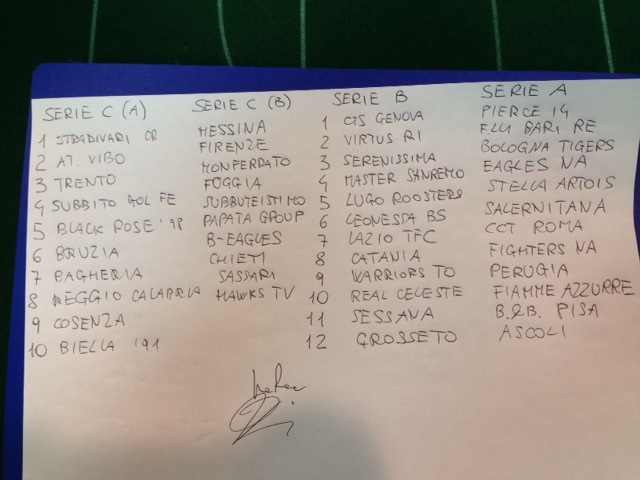 SERIE C (A)
1 STRADIVARI CR
2 AT. VIBO
3 TRENTO
4 SUBBITO GOL FE
5 BLACK ROSE '98
6 BRUZIA
7 BAGHERIA
8 REGGIO CALABRIA
9 COSENZA
10 BIELLA '91
SERIE C (B)
MESSINA
FIRENZE
MONFERRATO
FOGGIA
SUBBUTEISTIMO
PAPATA GROUP
B-EAGLES
CHIETI
SASSARI
HAWKS TV
SERIE B
1 CTS GENOVA
2 VIRTUS RI
3 SERENISSIMA
4 MASTER SANREMO
5 LUGO ROOSTERS
6 LEONESSA BS
7 LAZIO TFC
8 CATANIA
9 WARRIORS TO
10 REAL CELESTE
11 SESSANA
12 GROSSETO
SERIE A
PIERCE 14
F.LLI BARI RE
BOLOGNA TIGERS
EAGLES NA
STELLA ARTOIS
SALERNITANA
CCT ROMA
FIGHTERS NA
PERUGIA
FIAMME AZZURRE
B.2B. PISA
ASCOLI